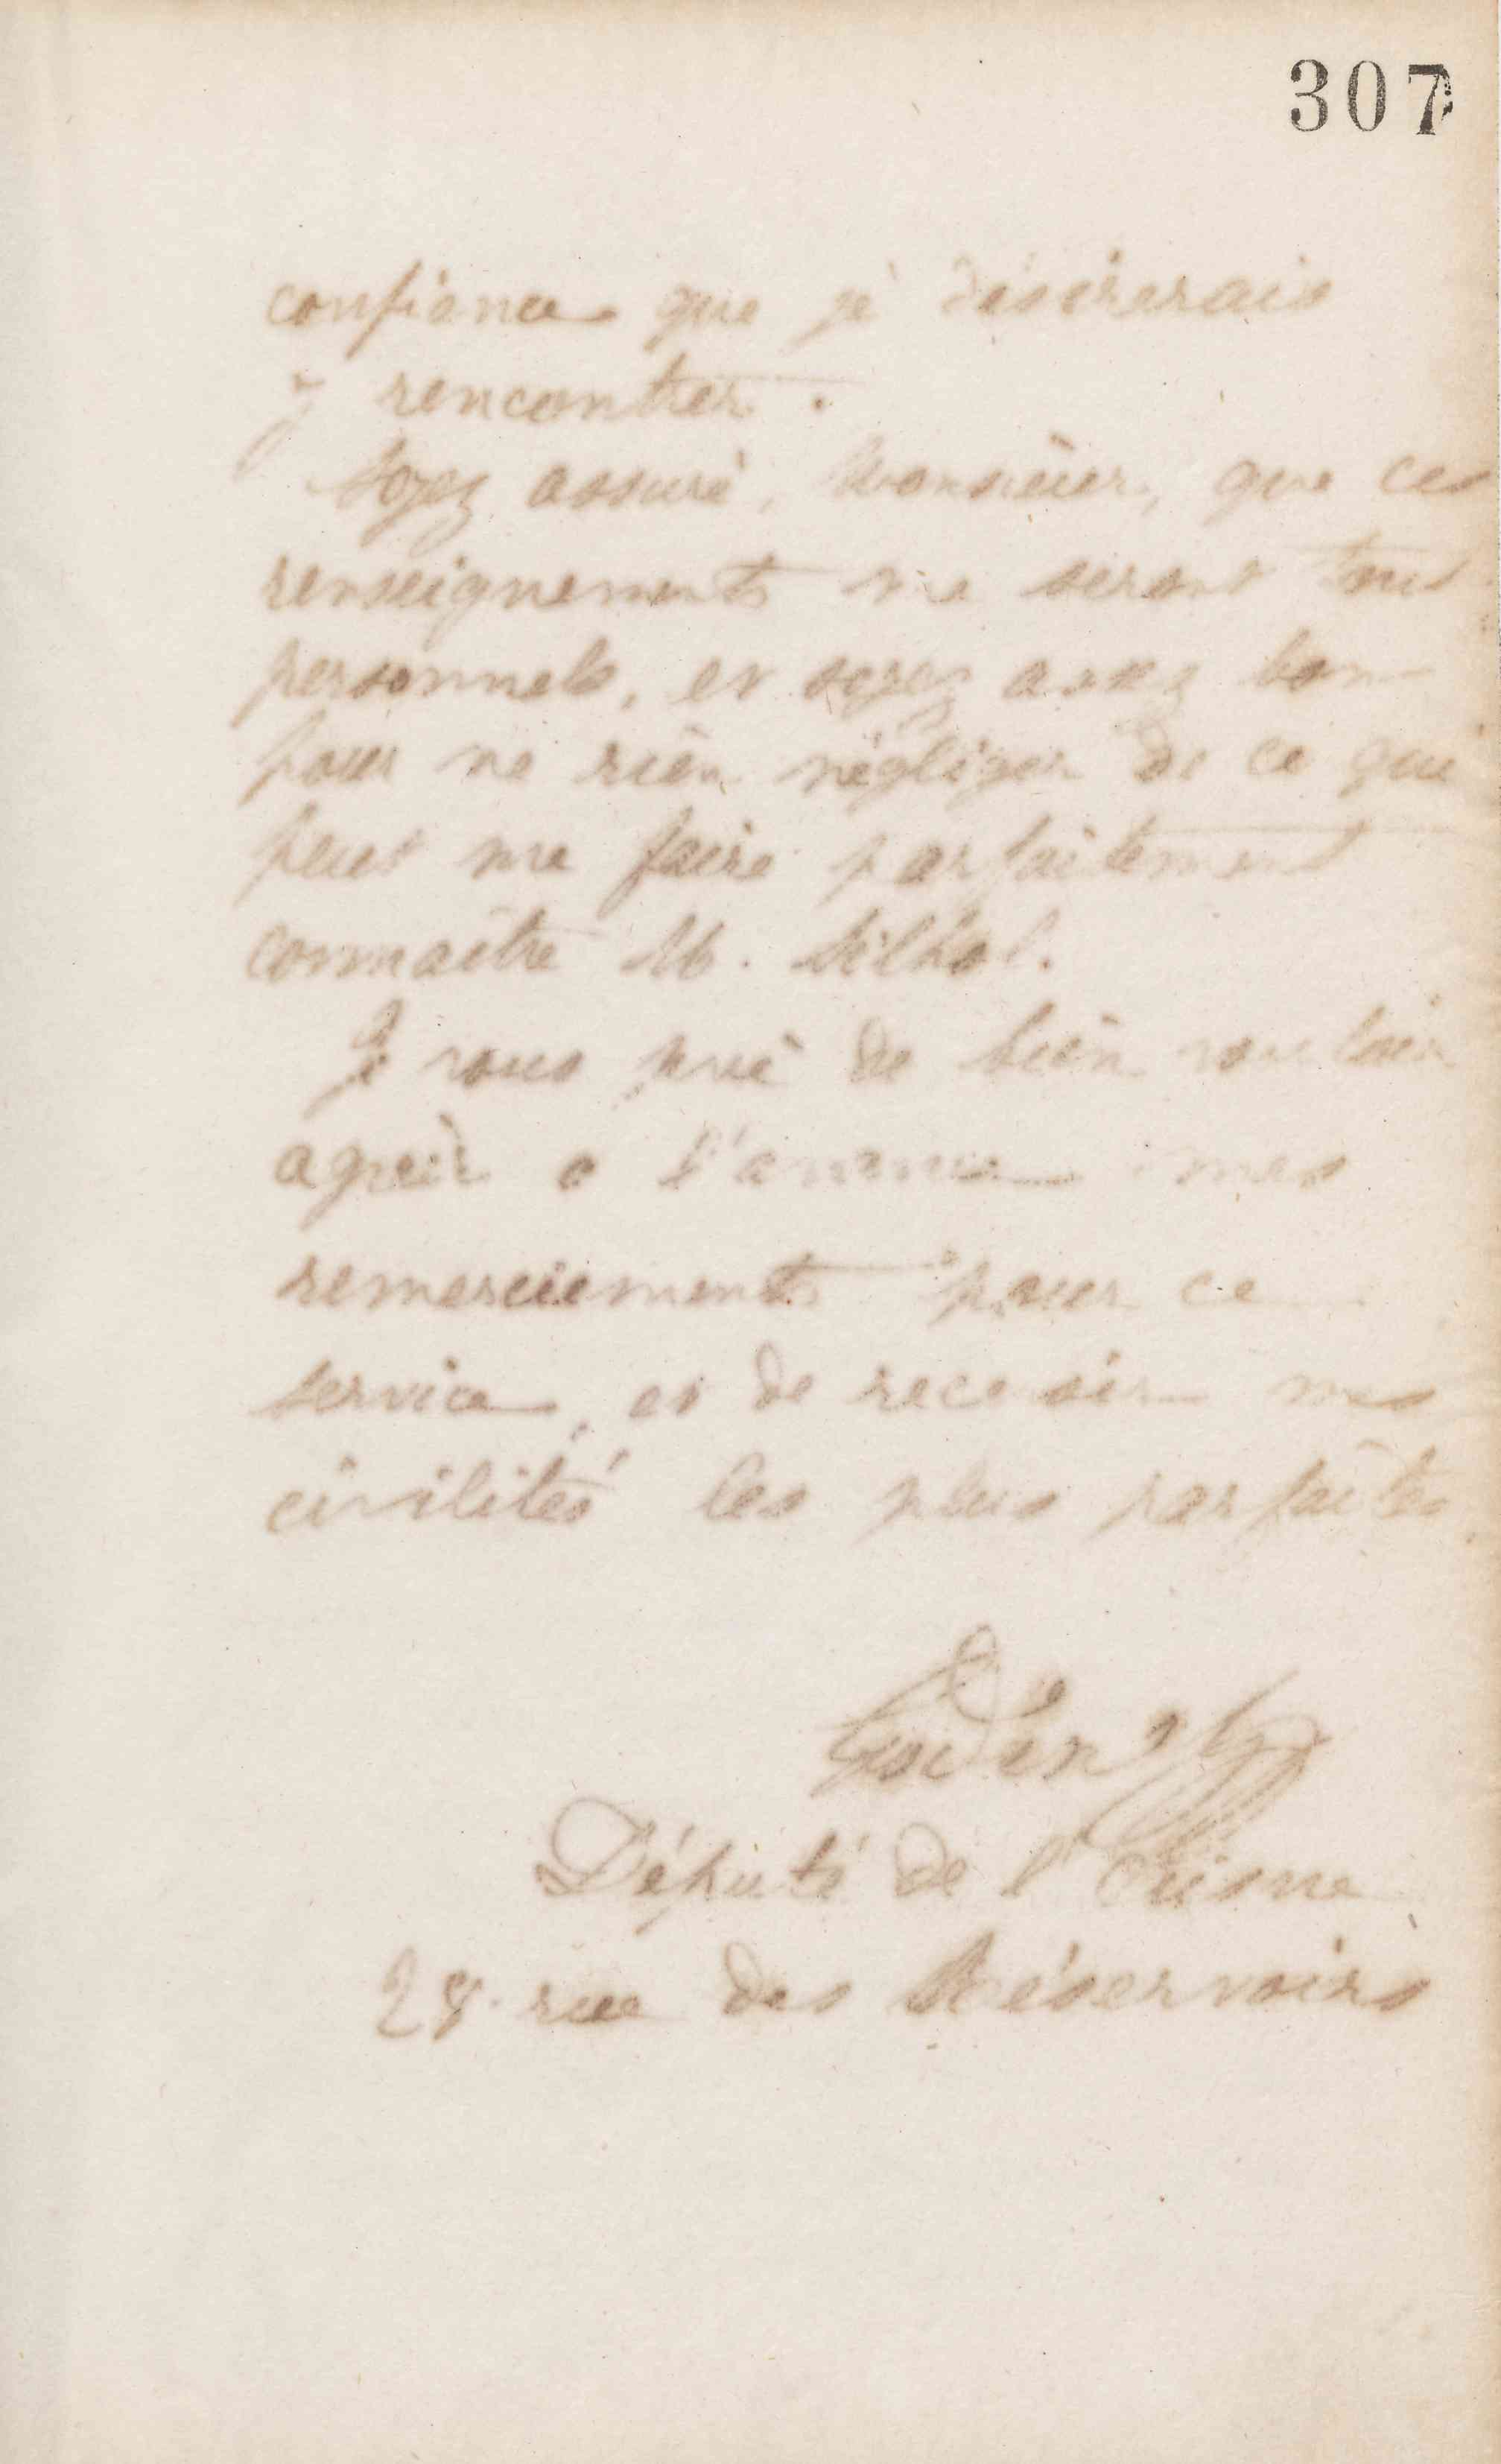 307
confiance que je désirerais
y rencontrer.
Soyez assuré, Monsieur, que ces
renseignements me seront tous
personnels, et soyez assez bon
pour ne rien négliger de ce qui
peut me faire parfaitement
connaître M. Silhol.
Je vous prie de bien vouloir
agréer à l'avance mes
remerciements pour ce
service, et de recevoir mes
civilités les plus parfaites.
Godin
Député de l'Aisne
28 rue des Réservoirs